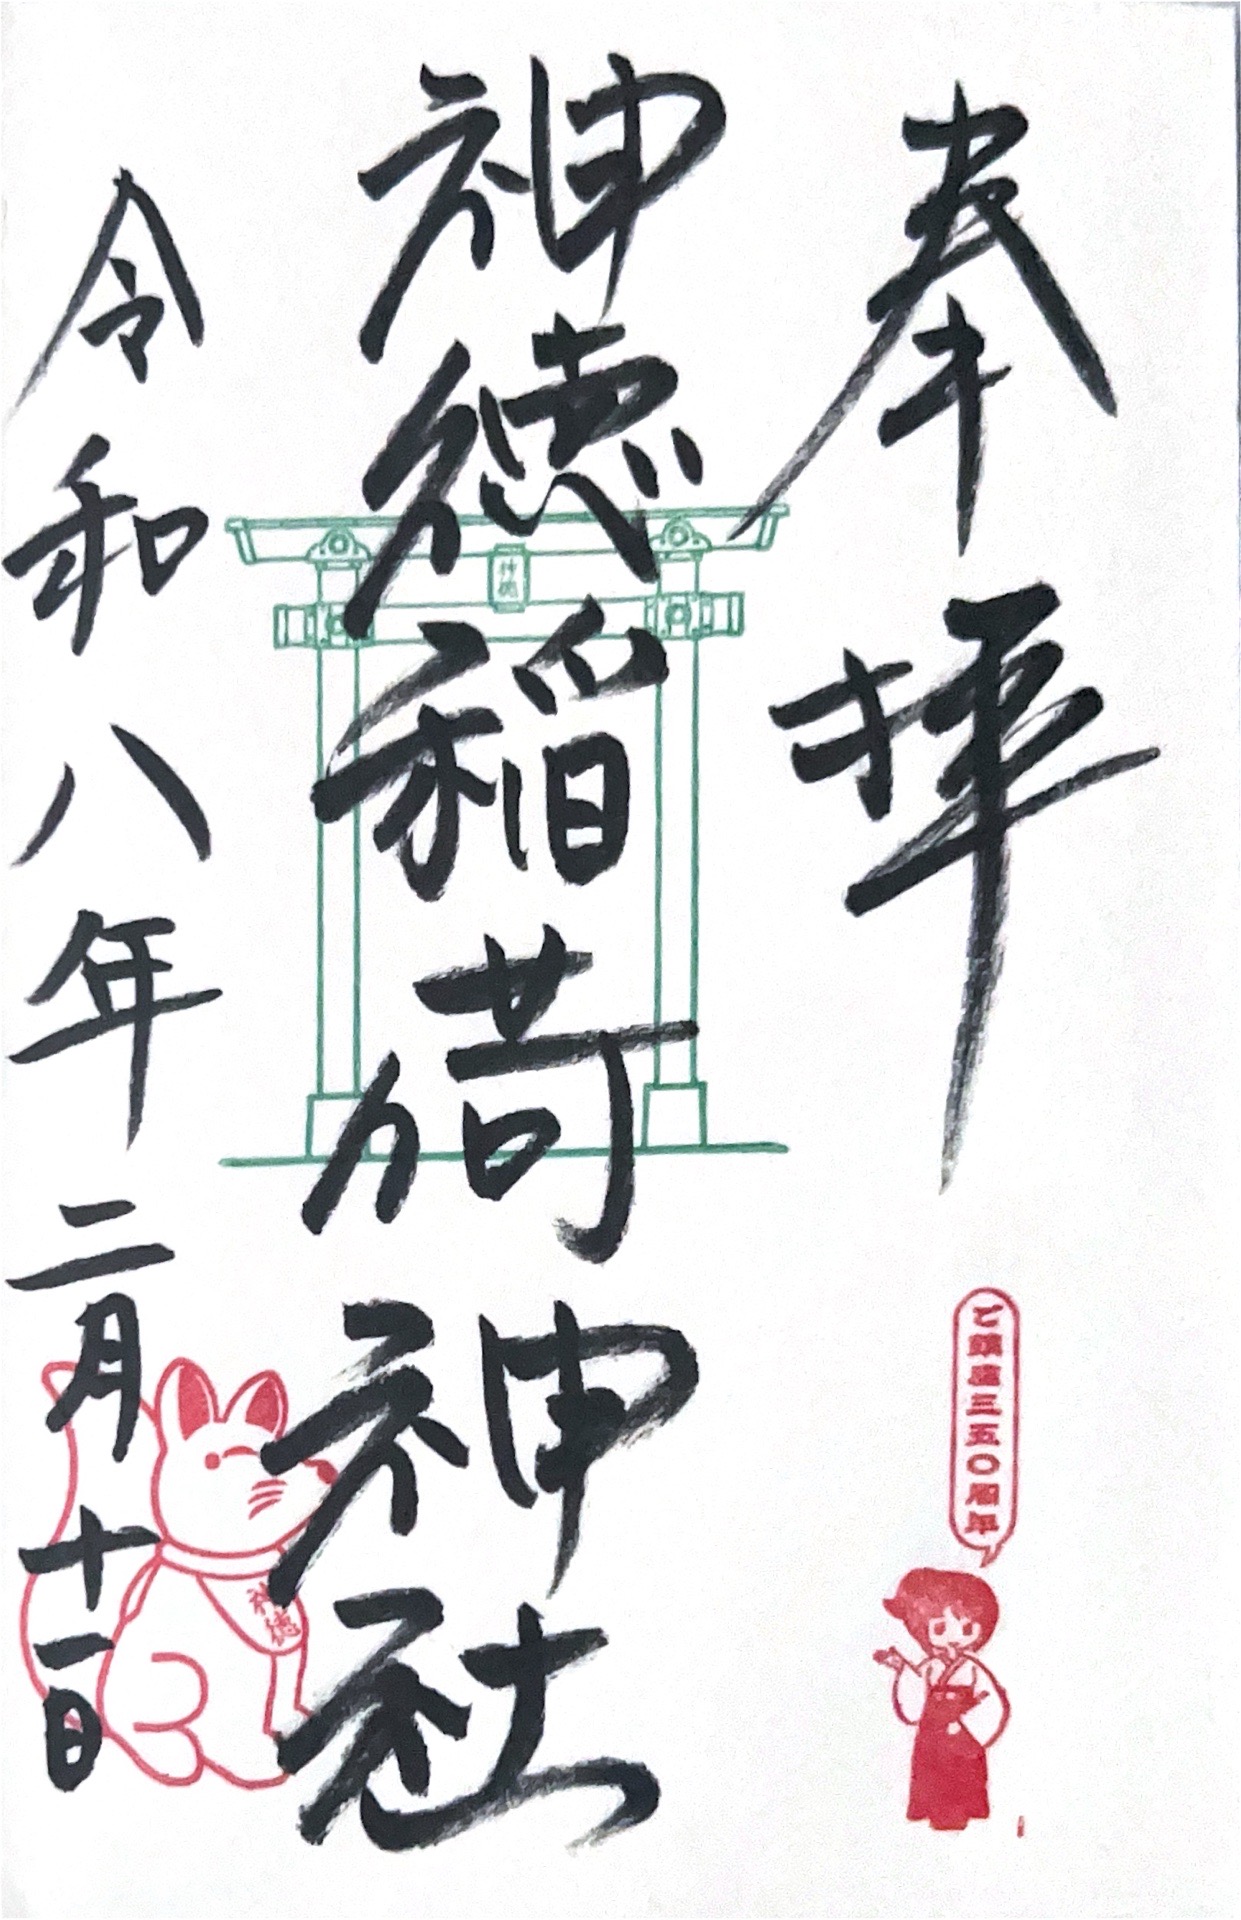 奉拝
ご鎮座三五〇周年
神徳稲荷神社
神徳
令和八年二月十一日
神徳